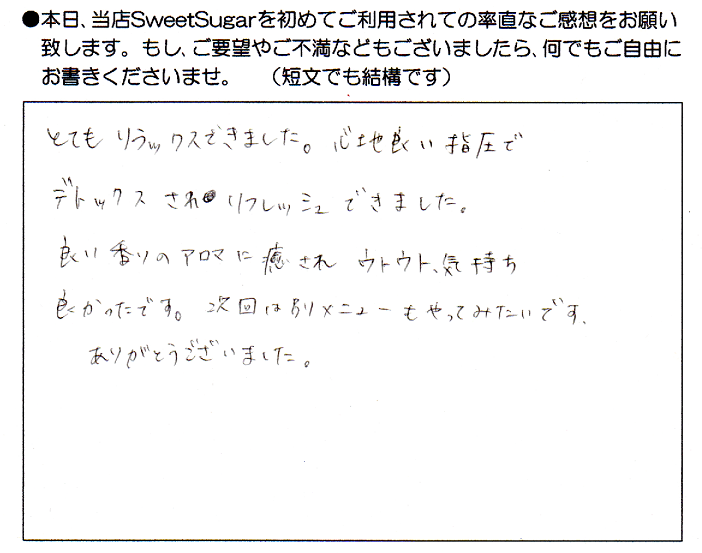 ●本日、当店SweetSugarを初めてご利用されての率直なご感想をお願い
致します。もし、ご要望やご不満などもございましたら、何でもご自由に
お書きくださいませ。　（短文でも結構です）
とても リラックスできました。心地良い指圧で
デトックス され リフレッシュ できました。
良い香りのアロマに癒され ウトウト、気持ち
良かったです。次回は別メニューもやってみたいです.
ありがとうございました。